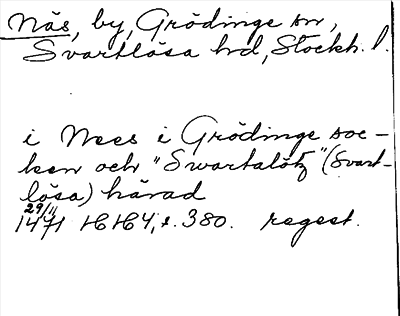 Näs, by, Grödinge sn,
Svartlösa hd, Stockh. l.
i Nees i Grödinge soc-
ken och "Swartalötz" (Svart-
lösa) härad
29/11
1471 HH4, s. 380. regest.